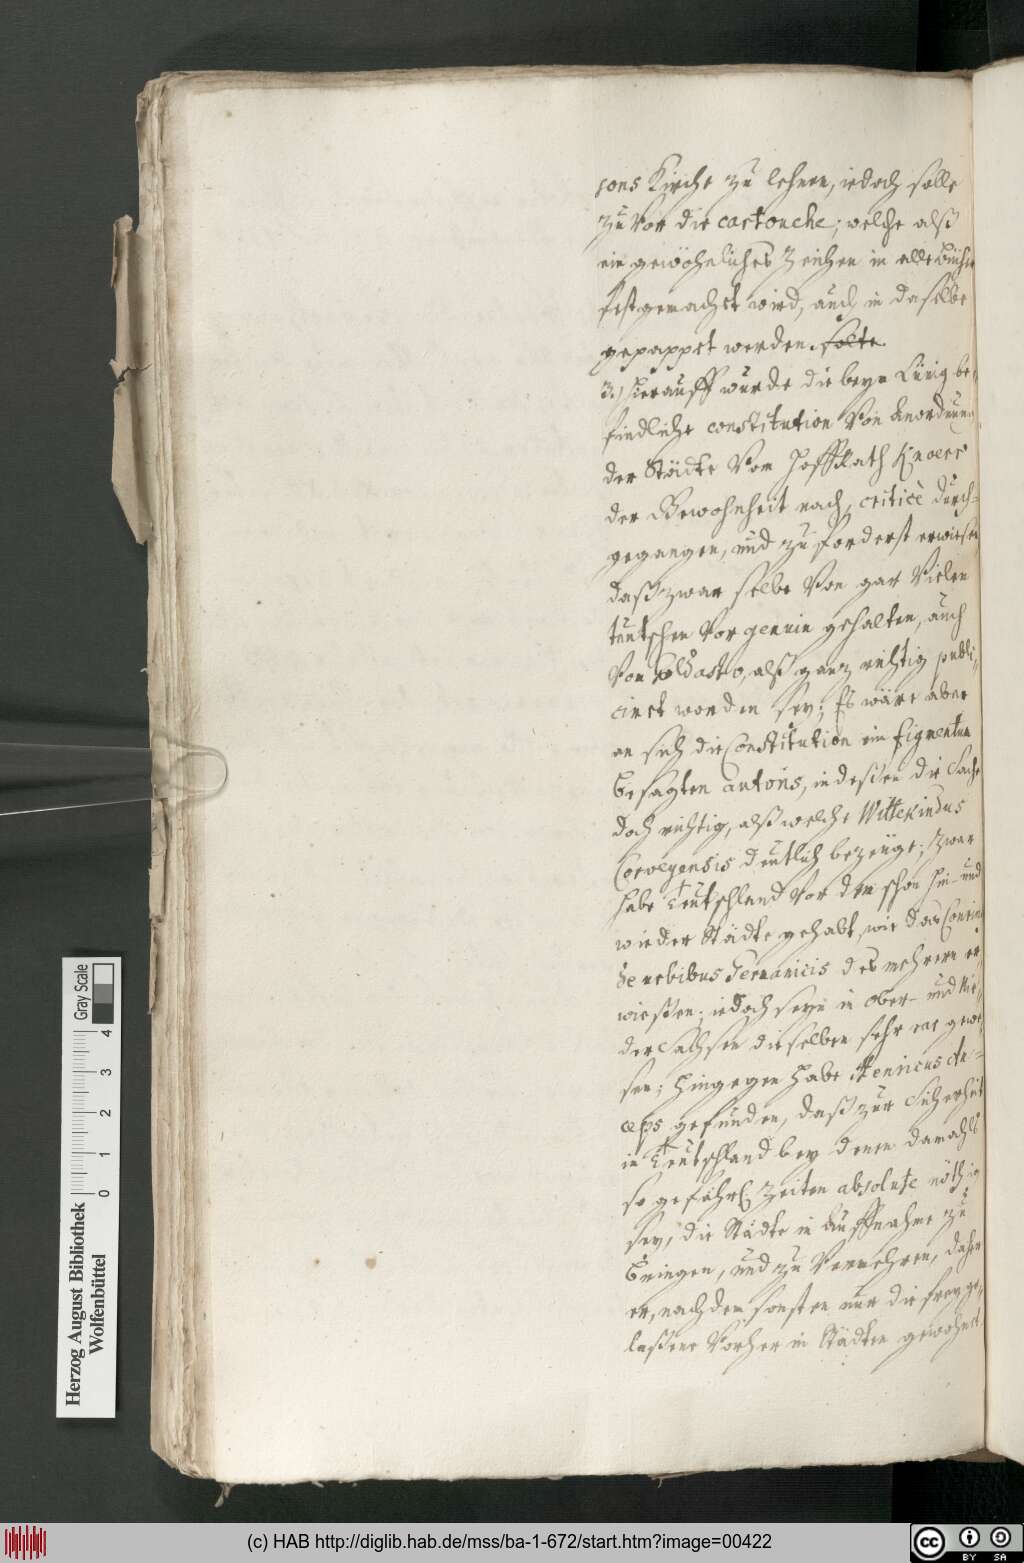 sons Kirche zu lehnen, iedoch solle
zuvor die cartouche, welche alß
ein gewöhnliches Zeichen in alle Bücher
fest gemacht wird, auch in daselbe
gepappet werden. solte.
3.) Hierauff wurde die beym Lünig be-
findliche constitution von Anordnung
der Städte vom Hoffrath Knoerr
der Gewohnheit nach, criticè durch-
gegangen, und zuforderst erwiesen
daß zwar selbe von gar vielen
teutschen vor genuin gehalten, auch
von Goldasto, alß ganz richtig publi-
ciret worden sey; Es wäre aber
an sich die Constitution ein figmentum
besagten autoris, indeßen die Sache
doch richtig, alß welche Wittekindus
Corveyensis deutlich bezeüge; zwar
habe Teutschland vor dem schon hin- und
wieder Städte gehabt, wie das
de urbibus Germanicis des mehrern er-
wießen; iedoch seyn in Ober- und Nie-
der Sachsen dieselben sehr rar gewe-
sen; hingegen habe Henricus Au-
ceps gefunden, daß zur Sicherheit
in Teutschland bey denen damahls
so gefährl. Zeiten absolute nöthig
sey, die Städte in Auffnahme zu
bringen, und zu vermehren, daher
er, nachdem sonsten nur die frey ge-
laßene vorher in Städten gewohnet
Herzog August Bibliothek
Wolfenbüttel
0 1 2 3 4
Gray Scale
(c) HAB http://diglib.hab.de/mss/ba-1-672/start.htm?image=00422
cc BY SA